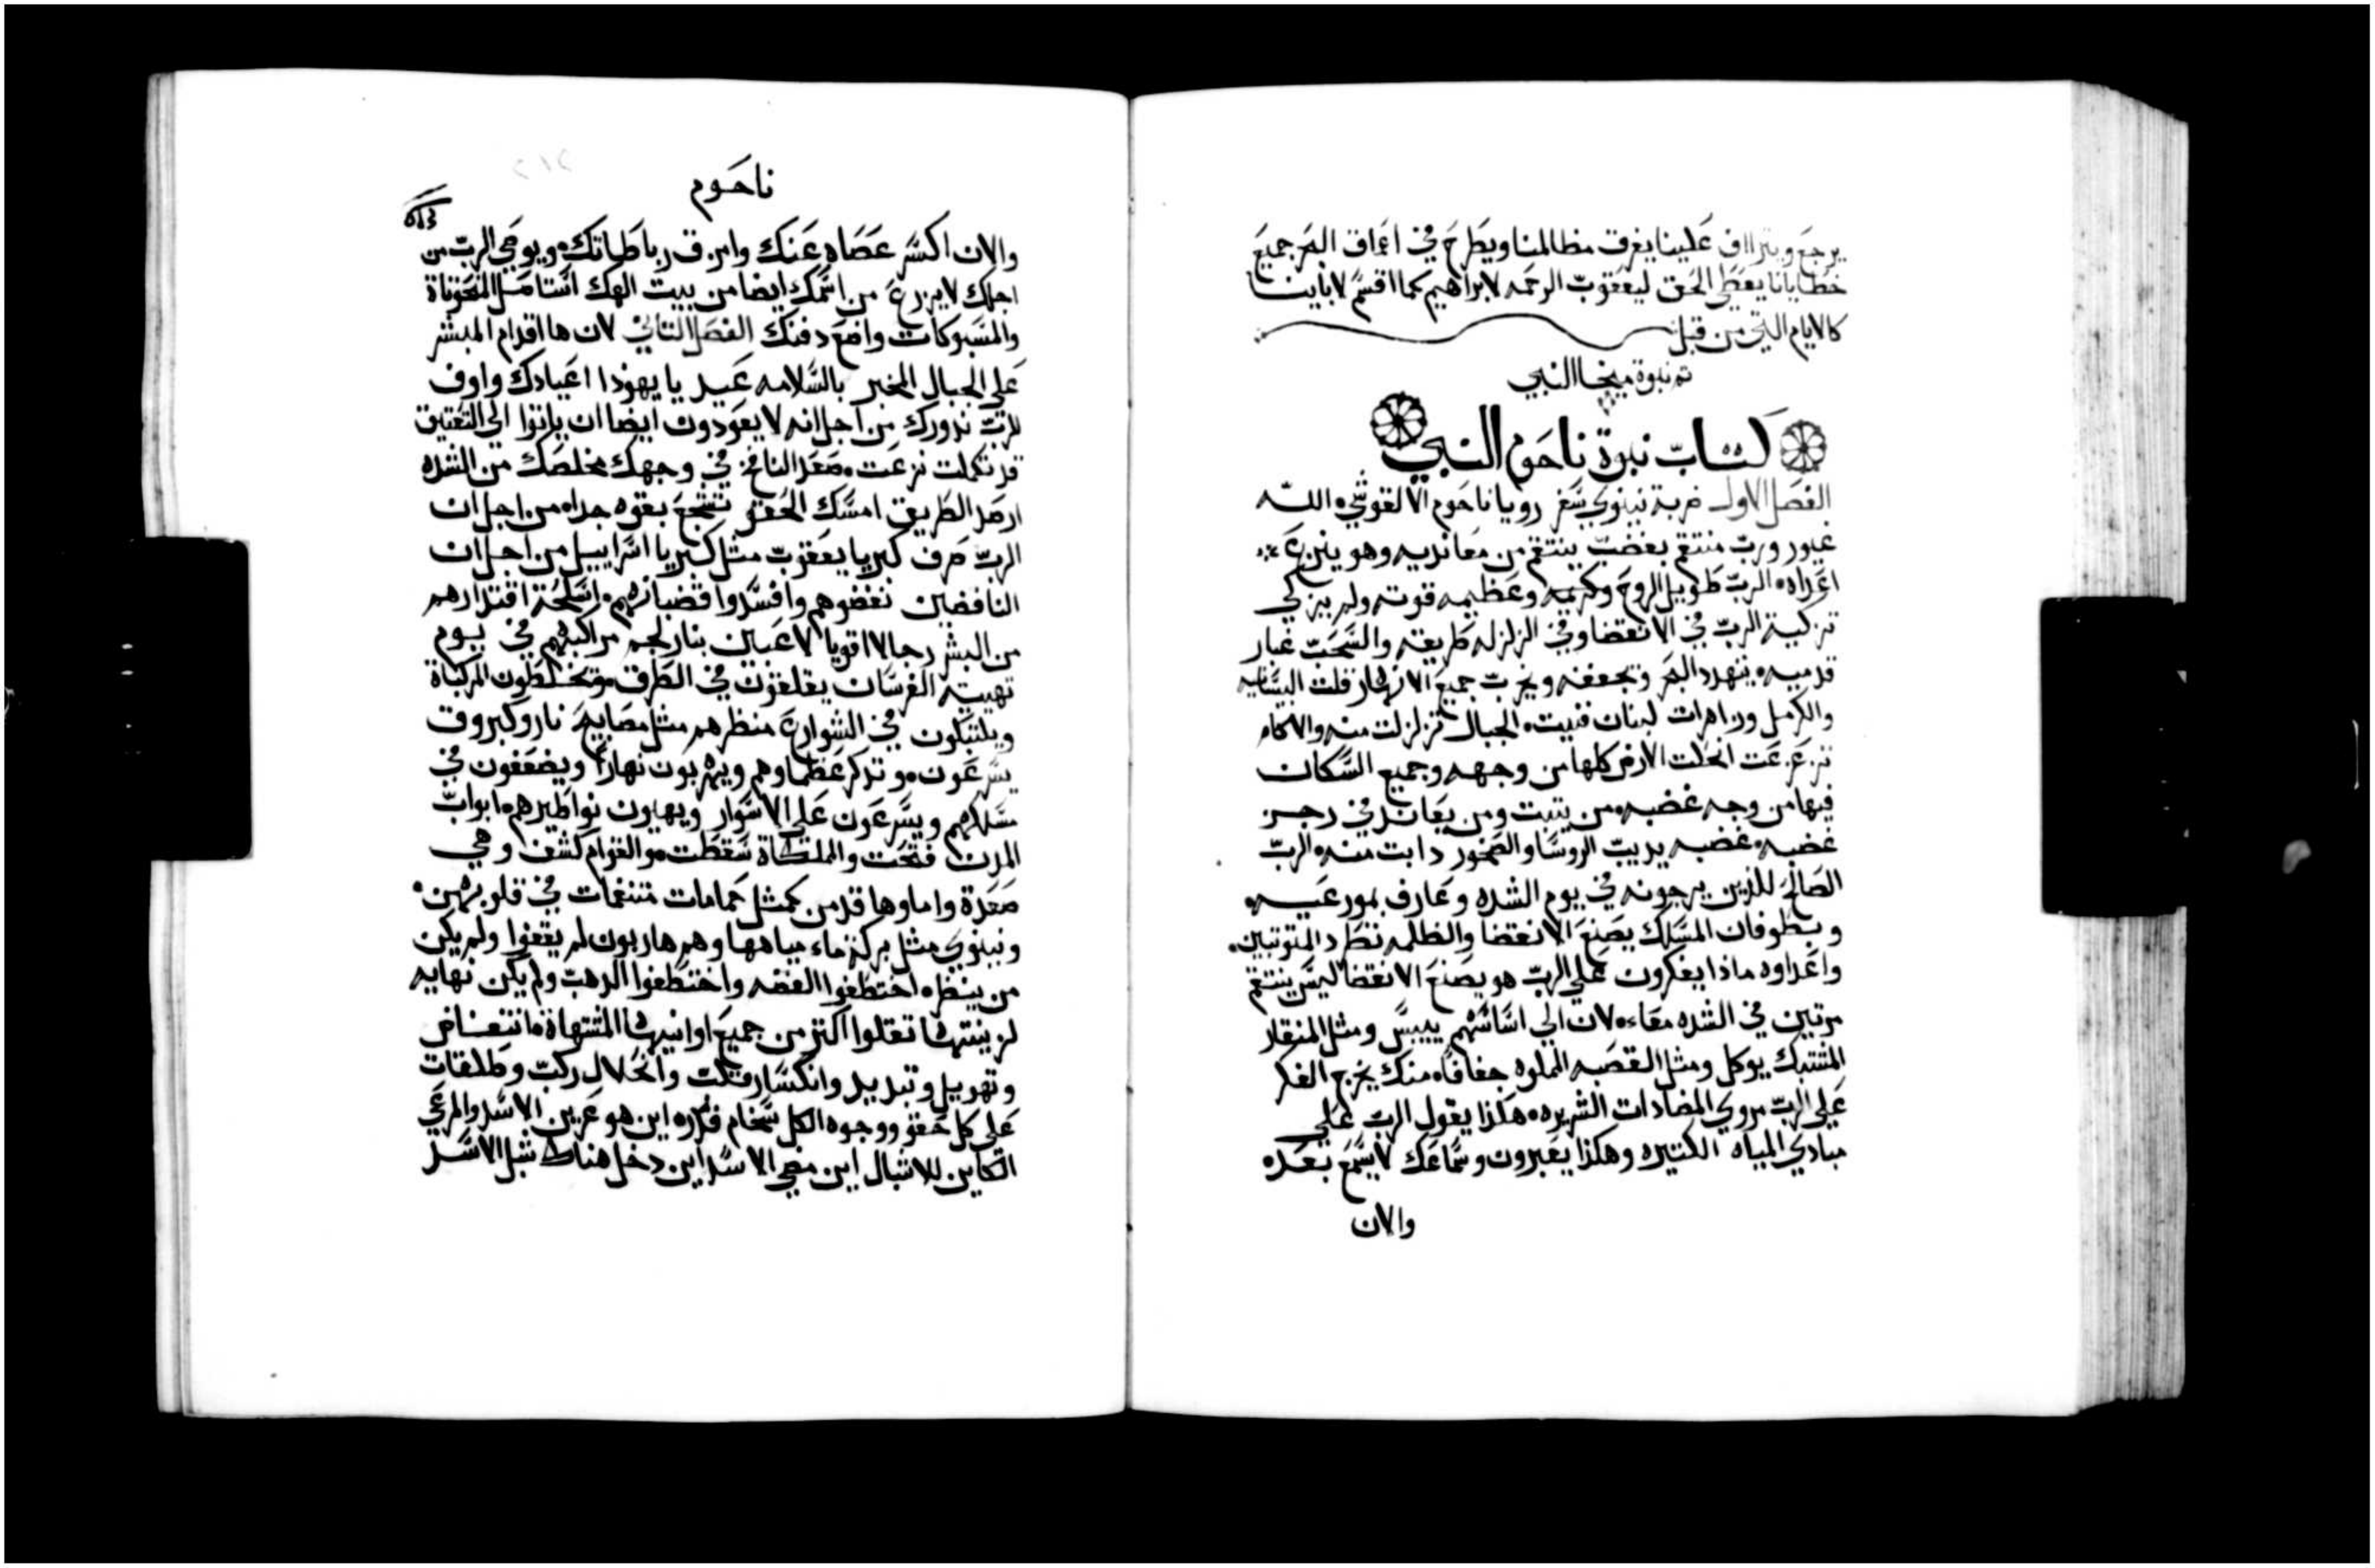 يرجع ويتراف علينا يغرق مظالمنا ويطرح في اعماق البحر جميع
خطايانا يعطي الحق ليعقوب الرحمه لابراهيم كما اقسم لاباينا
كالايام التي من قبل
تم نبوة ميخا النبي
كتاب نبوة ناحوم النبي
الفصل الاول ضربة نينوي سفر رويا ناحوم الالقوشي الله
غيور ورب منتقم بغضب ينتقم من معانديه وهو ينزع
اعداه الرب طويل الروح وكريمه وعظيمه قوته ولم يزكي
تزكية الرب في الانقضا وفي الزلزله طريقه والسحب غبار
قدميه ينهدد البحر ويجففه ويخرب جميع الانهار قلت البيسانيه
والكرمل وزاهرات لبنان فنيت الجبال تزلزلت منه والاكام
تزعزعت انخلت الارض كلها من وجهه وجميع السكان
فيها من وجه غضبه من يثبت ومن يعاند في رجز
غضبه غضبه يديب الروسا والصخور دابت منه الرب
الصالح للذين يرجونه في يوم الشده وعارف بمورعيه
وبطوفان المسلك يصنع الانقضا والظلمه تطرد المتوتبين
واعداوه ماذا يفكرون علي الرب هو يصنع الانقضا ليس ينتقم
مرتين في الشده معاء لان الي اساسهم ييبس ومثل المنقار
المشتبك يوكل ومثل القصبه المملوه جفافا منك يخرج الفكر
علي الرب مروي المضادات الشريره هكذا يقول الرب علي
مبادي المياه الكتيره وهكذا يعبرون وسماعك لا يسمع بعده
والان
ناحوم
والان اكسر عصاه عنك وامزق رباطاتك ويوصي الرب من
اجلك لا يزرع من اسمك ايضا من بيت الهك استاصل المنحوتاة
والمسبوكات واضع دفنك الفصل التاني لان ها اقدام المبشر
علي الجبال المخبر بالسلامه عيد يا يهودا اعيادك واوف
للرب ندورك من اجل انه لا يعودون ايضا ان ياتوا الي التعتيق
قد تكملت نزعت صعد النافخ في وجهك مخلصك من الشده
ارصد الطريق امسك الحقو تشجع بقوه جداه من اجل ان
الرب صرف كبريا يعقوب مثل كبريا اسراييل من اجل ان
النافضين نفضوهم وافسدوا قضبانهم واسلحة اقتدارهم
من البشر رجالا اقويا لاعبين بنار لجم مراكبهم في يوم
تهييته الفرسان يقلقون في الطرق وتختلطون المركباة
ويلتبكون في الشوارع منظرهم مثل مصابيح نار وكبروق
يسرعون وتذكر عظماوهم ويهربون نهارا ويضعفون في
مسلكهم ويسرعون علي الاسوار ويهيون نواطيرهم ابواب
المدن فتحت والملكاة سقطت والقوام كشف وهي
صعدة واماوها قدمن كمثل حمامات متنغمات في قلوبهن
ونينوي مثل بركة ماء مياهها وهم هاربون لم يقفوا ولم يكن
من ينظر احتطفوا الفضه واختطفوا الذهب ولم يكن نهايه
لزينتها تقلوا اكتر من جميع اوانيها المشتهاة انتفاض
وتهويل وتبديد وانكسار قلب وانحلال ركب وطلقات
علي كل حقو ووجوه الكل سخام قدره اين هو عرين الاسد والمرعي
الكاين للاشبال اين مضي الاسد اين دخل هناك شبل الاسد